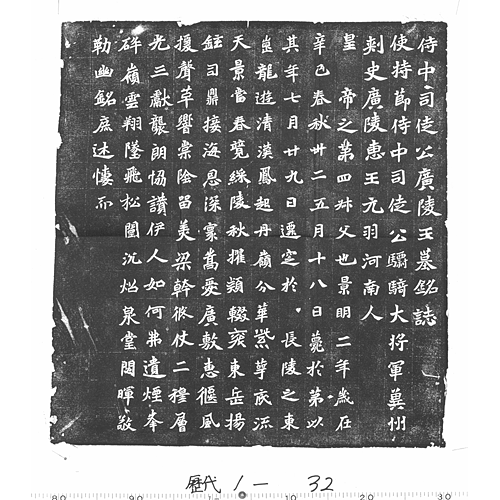 侍中司徒公廣陵王墓銘誌
使持節侍中司徒公驃騎大將軍冀州
刺史廣陵惠王元羽河南人
皇 帝之第四叔父也景明二年歲在
辛巳春秋卅二五月十八日薨於第以
其年七月廿九日遷窆於 長陵之東
崗龍遊清漢鳳起丹嶺分華紫萼底流
天景當春競綵陵秋擢穎輟袞東岳揚
鉉司鼎接海恩深褰嵩愛廣敷惠偃風
援聲草響棠陰留美梁幹仗二禮層
光三獻襲朗協讚伊人如何弗遺煙峯
碎嶺雲翔墜飛松闈沉炤泉堂閟暉敬
勒幽銘庶述悽而
歷代 1一 32
80 90 10 20 30 40